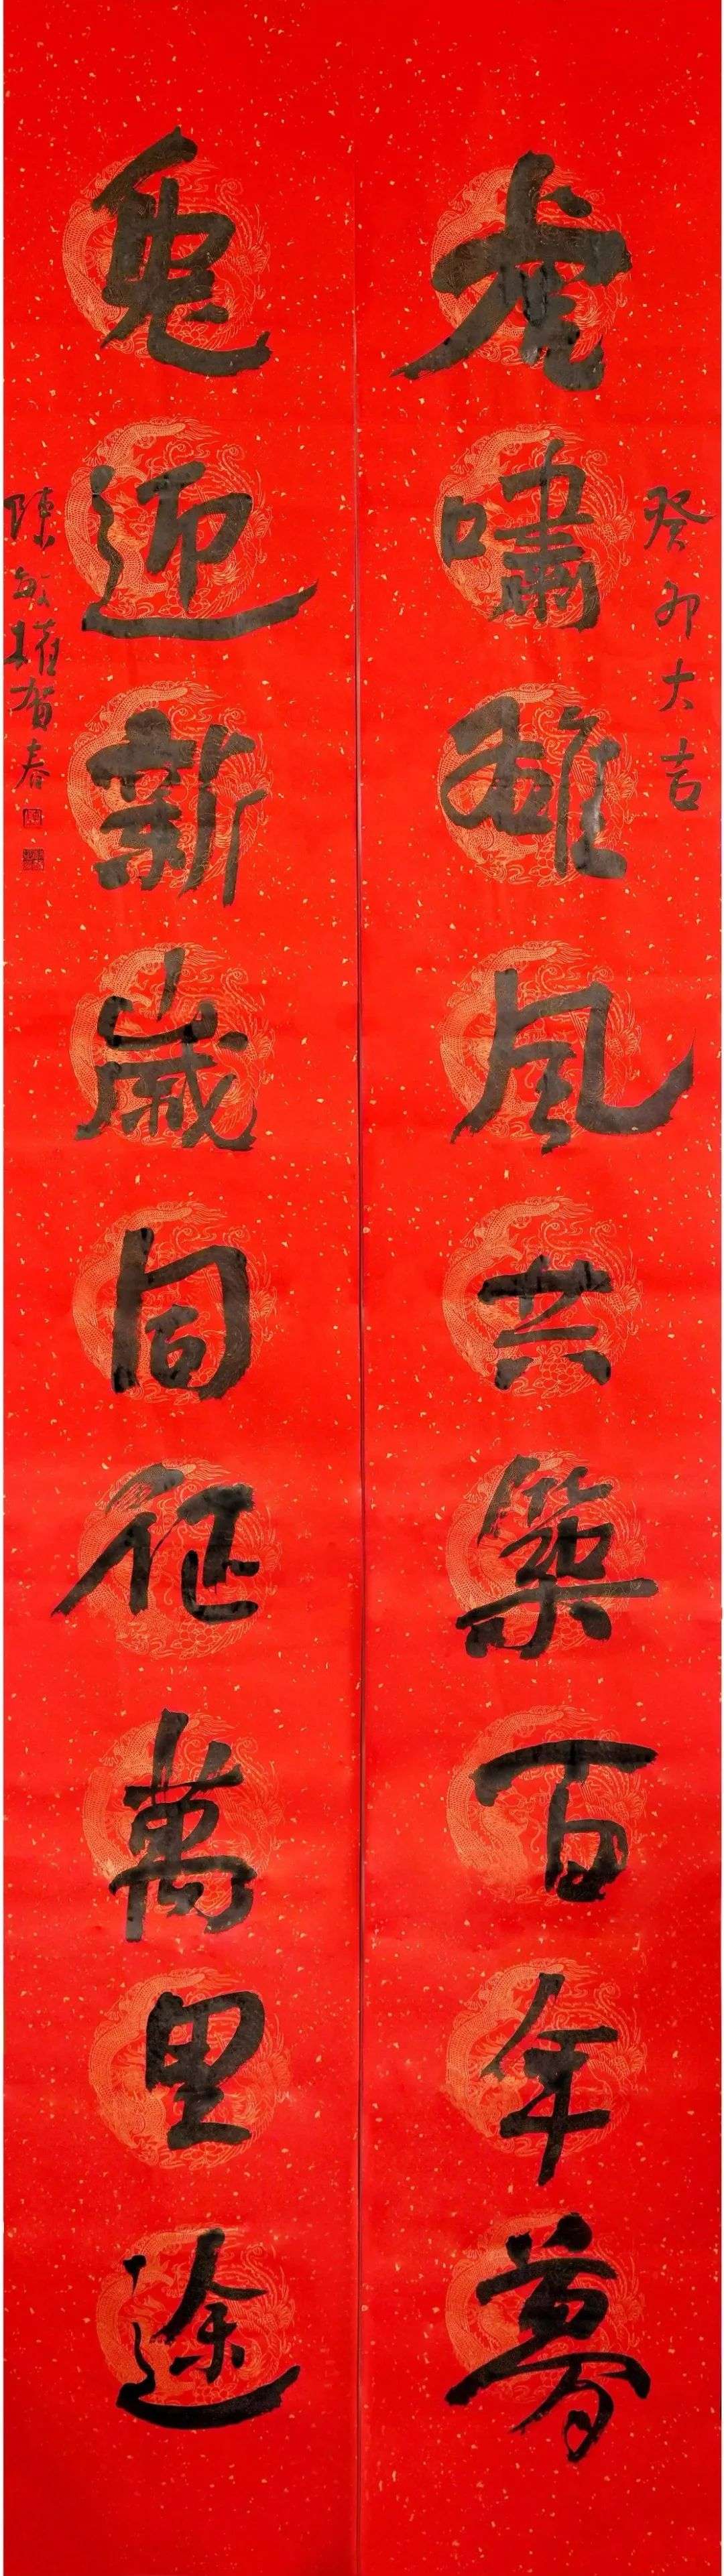 癸卯大吉
虎嘯雄風共築百年夢
兔迎新歲同征萬里途
陳敏權賀春